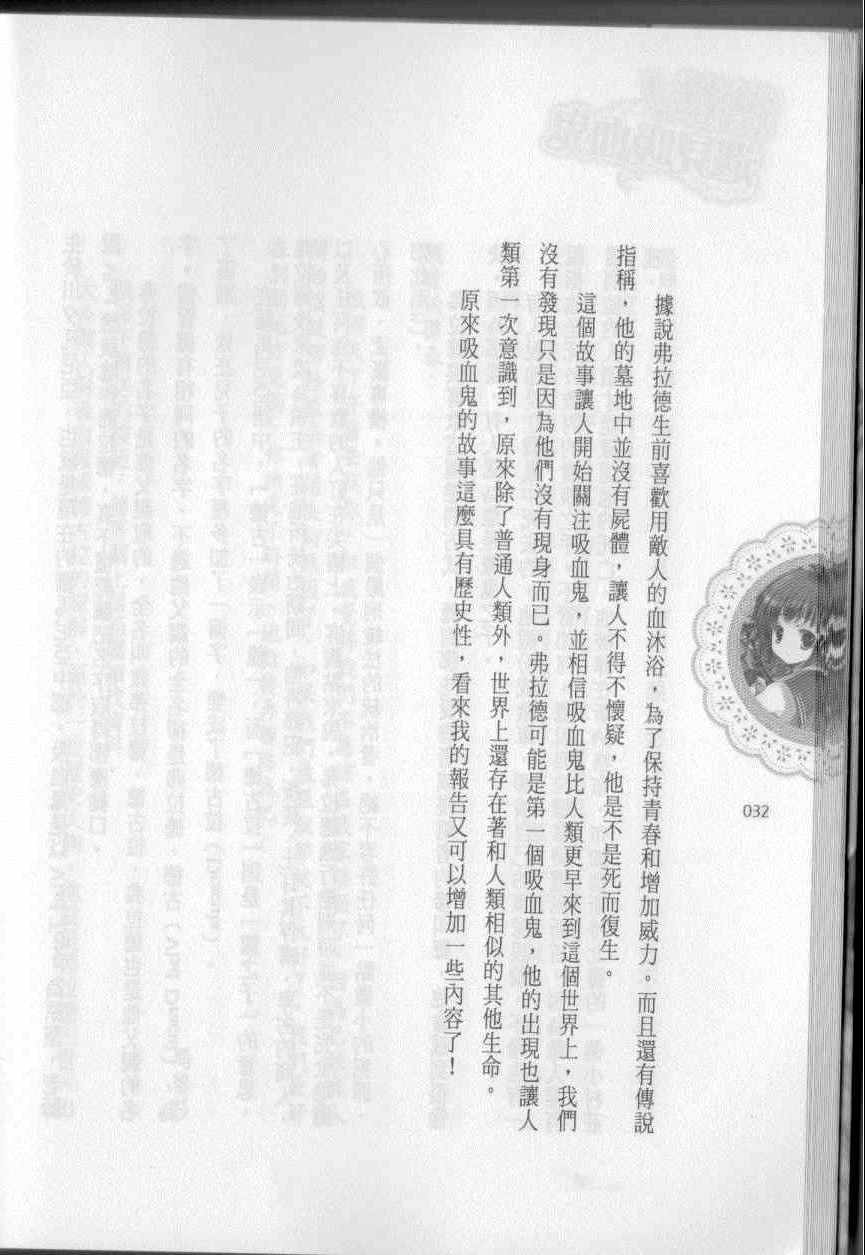 據說弗拉德生前喜歡用敵人的血沐浴，為了保持青春和增加威力。而且還有傳說
指稱，他的墓地中並沒有屍體，讓人不得不懷疑，他是不是死而復生。
這個故事讓人開始關注吸血鬼，並相信吸血鬼比人類更早來到這個世界上，我們
沒有發現只是因為他們沒有現身而已。弗拉德可能是第一個吸血鬼，他的出現也讓人
類第一次意識到，原來除了普通人類外，世界上還存在著和人類相似的其他生命。
原來吸血鬼的故事這麼具有歷史性，看來我的報告又可以增加一些內容了！
032